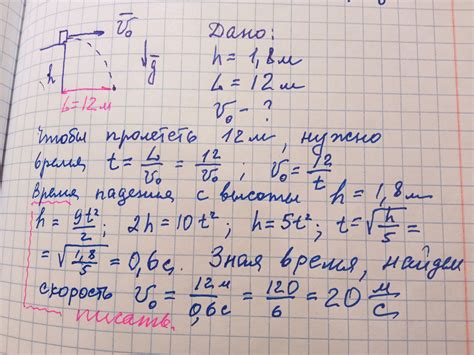 v̅₀
g̅
h
L = 12 м
Дано:
h = 1,8 м
L = 12 м
v₀ - ?
Чтобы пролететь 12 м, нужно
время t = L/v₀ = 12/v₀ ; v₀ = 12/t
Время падения с высоты h = 1,8 м
h = gt²/2 ; 2h = 10t² ; h = 5t² ; t = √(h/5) =
= √(1,8/5) = 0,6 с. Зная время, найдем
скорость v₀ = 12 м/0,6 с = 120/6 = 20 м/с
писать.